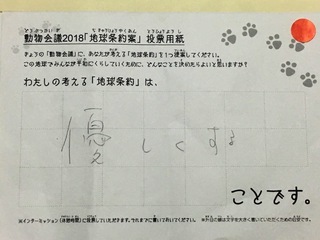 動物会議2018「地球条約案」投票用紙
きょうの「動物会議」に、あなたが考える「地球条約」を1つ提案してください。
この地球でみんなが平和にくらしていくために、どんなことを決めたらよいと思いますか?
わたしの考える「地球条約」は、
優しくする
ことです。
※インターミッション(休憩時間)に投票していただきます。それまでに書いておいてください。